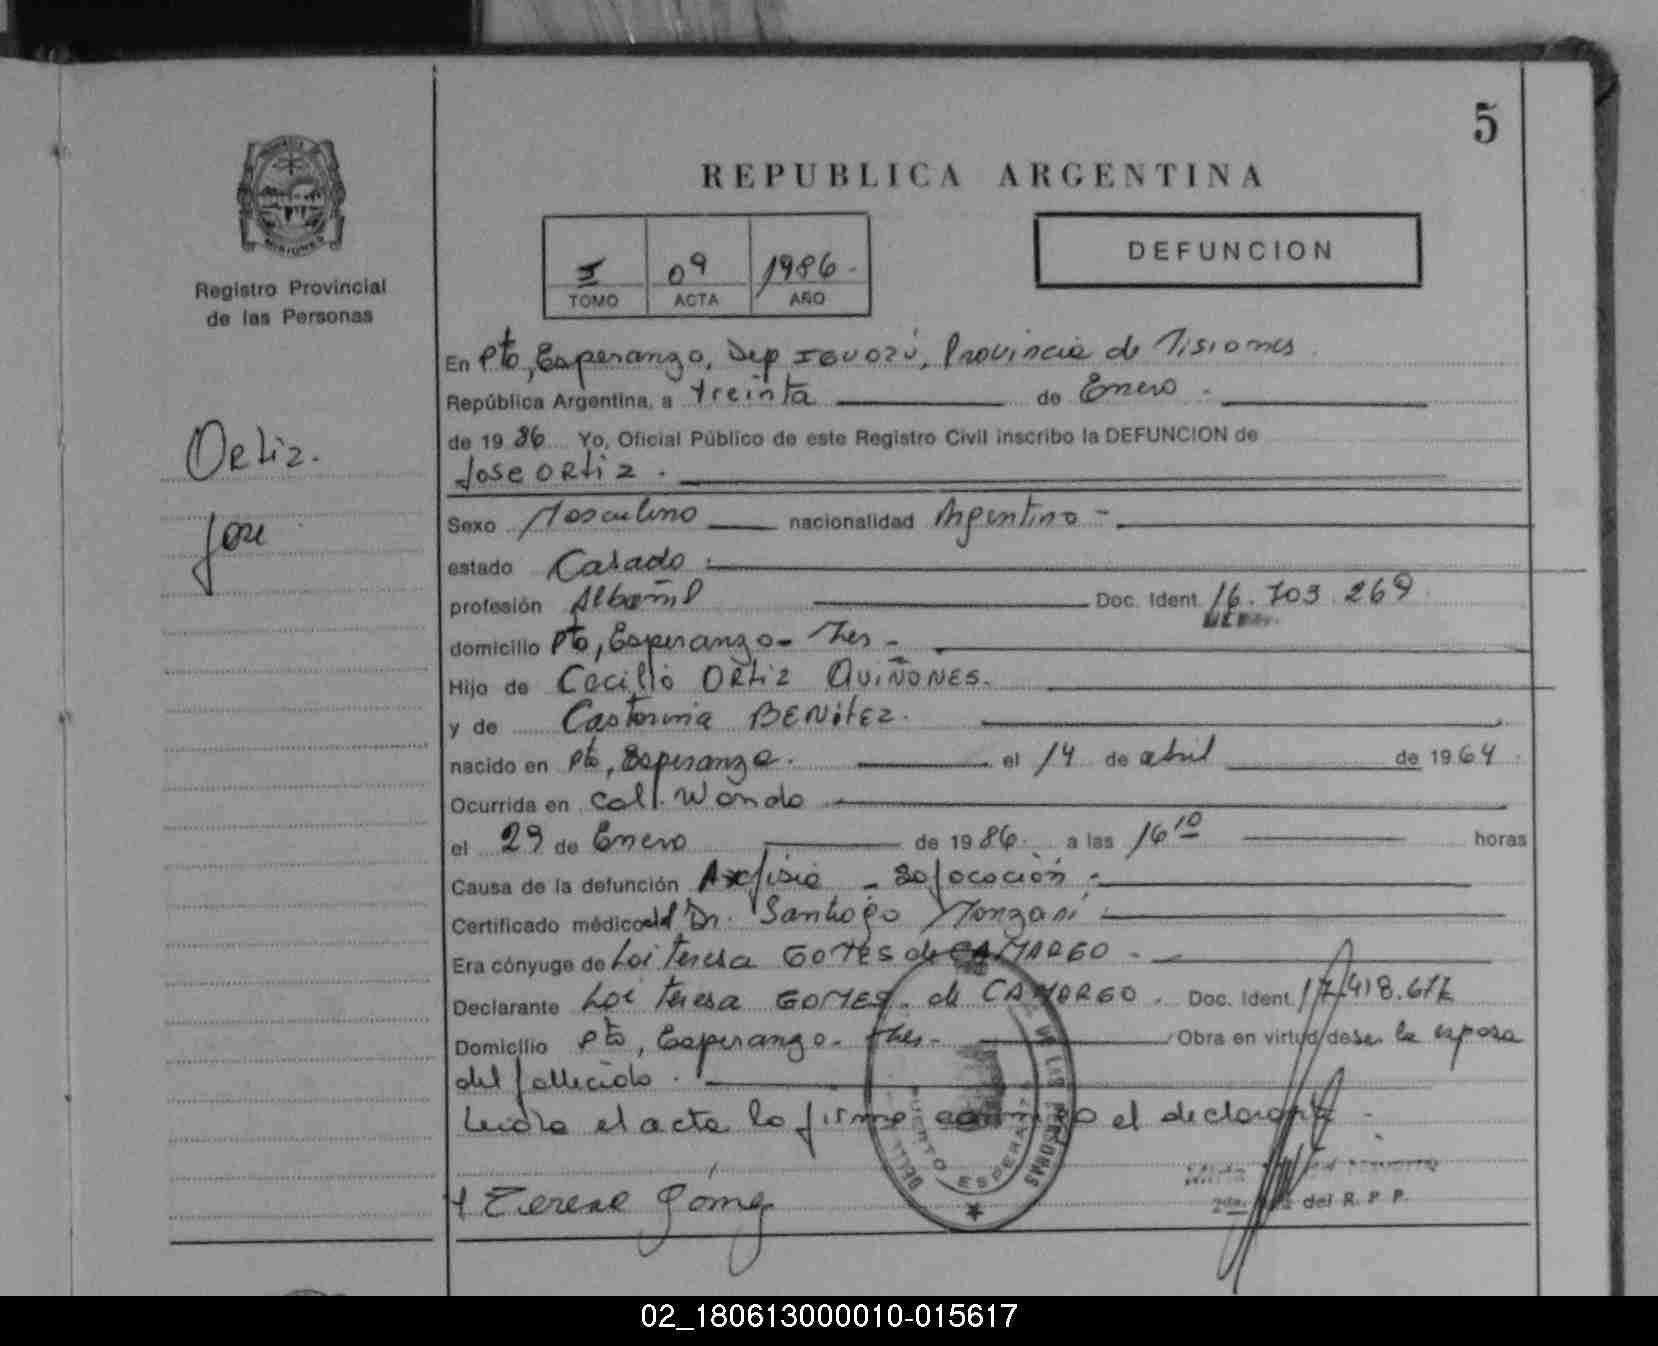 5
REPUBLICA ARGENTINA
I 09 1986.-
TOMO ACTA AÑO
DEFUNCION
MISIONES
Registro Provincial
de las Personas
Ortiz.
Jose
En Pto, Esperanza, Dep IGUAZÚ, Provincia de Misiones
República Argentina, a treinta de Enero.-
de 19 86 Yo, Oficial Público de este Registro Civil inscribo la DEFUNCION de
Jose ORtiz.
Sexo Masculino nacionalidad Argentino-
estado Casado.
profesión Albañil Doc. Ident. 16.703.269
domicilio Pto, Esperanza- Mes-
Hijo de Cecilio ORtiz QUIÑONES.
y de Castorina BENítEZ.
nacido en Pto, Esperanza. el 14 de abril de 1964
Ocurrida en Coll. Wanda
el 29 de Enero de 1986. a las 16 10 horas
Causa de la defunción Axfisia - Sofocación.-
Certificado médico del Dr. Santiago Monzani
Era cónyuge de Loi Teresa GOMES de CAMARGO-
Declarante Loi Teresa GOMES. de CAMARGO. Doc. Ident. 17.418.677
Domicilio Pto, Esperanza- Mes- Obra en virtud de ser la esposa
del fallecido.
Leida el acta la firma conmigo el declarante-
DE LAS PERSONAS
PUERTO ESPERANZA
Terese Gómez
2da. del R. P. P.
02_180613000010-015617